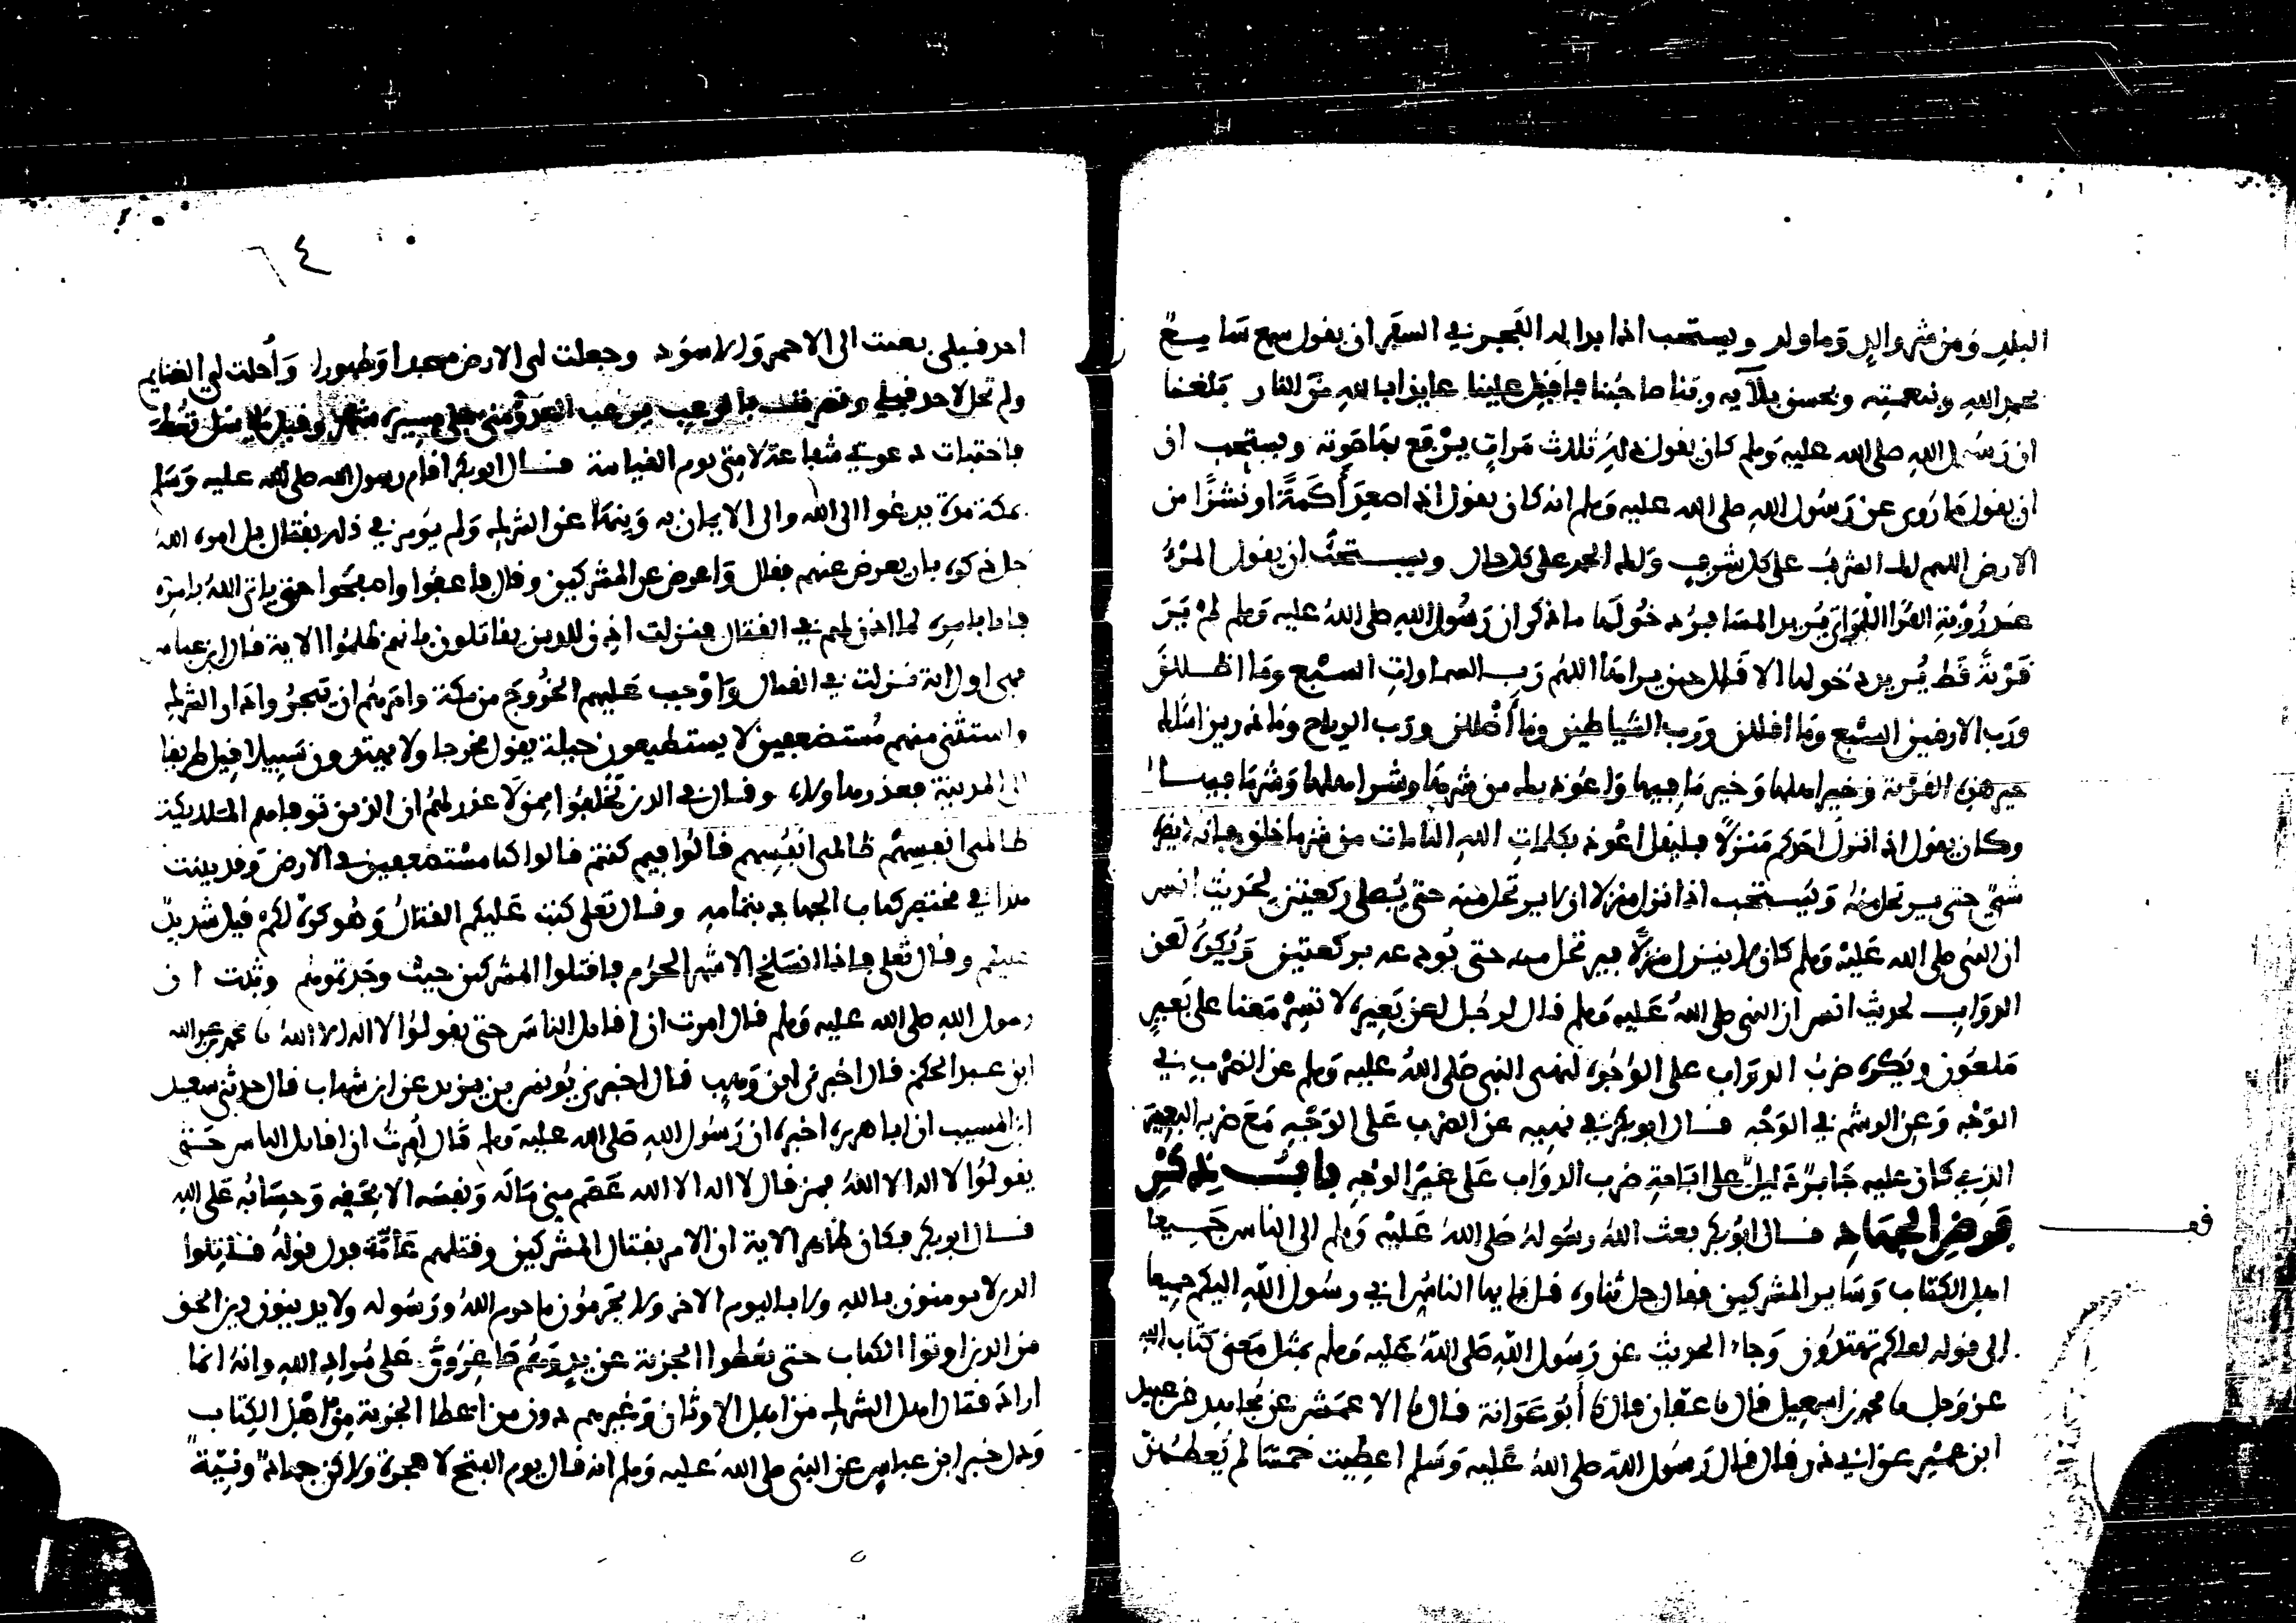 البلد ومن شر والد وما ولد ويستحب اذا بدا له الفجر في السفر ان يقول سمع سامع
بحمد الله ونعمته وبحسن بلايه ربنا صاحبنا فافضل علينا عايذا بالله من النار بلغنا
ان رسول الله صلى الله عليه وسلم كان يقول ذلك ثلاث مرات يرفع بها صوته ويستحب ان
ان يقول ما روي عن رسول الله صلى الله عليه وسلم انه كان يقول اذا صعد أكمةً او نشزًا من
الارض اللهم لك الشرف على كل شرف ولك الحمد على كل حال ويستحب ان يقول المرء
عند رؤية القرا اللواتي يريد المسافر دخولها ما ذكر ان رسول الله صلى الله عليه وسلم لم ير
قرية قط يريد دخولها الا قال حين يراها اللهم رب السماوات السبع وما اظللن
ورب الارضين السبع وما اقللن ورب الشياطين وما أضللن ورب الرياح وما ذرين اسالك
خير هذه القرية وخير اهلها وخير ما فيها واعوذ بك من شرها وشر اهلها وشر ما فيها
وكان يقول اذا نزل احدكم منزلًا فليقل اعوذ بكلمات الله التامات من شر ما خلق فانه لا يضره
شيٌ حتى يرتحل منه ويستحب اذا نزل منزلا ان لا يرتحل منه حتى يصلي ركعتين لحديث انس
ان النبي صلى الله عليه وسلم كان لا ينزل منزلًا فيرتحل منه حتى يودعه بركعتين ويكره لعن
الدواب لحديث انس ان النبي صلى الله عليه وسلم قال لرجل لعن بعيره لا تسر معنا على بعير
ملعون ويكره ضرب الدواب على الوجوه لنهي النبي صلى الله عليه وسلم عن الضرب في
الوجه وعن الوشم في الوجه قال ابو بكر في نهيه عن الضرب على الوجه مع ضربه البعير
الذي كان عليه جابر دليلٌ على اباحة ضرب الدواب على غير الوجه باب ذكر
فرض الجهاد قال ابو بكر بعث الله رسوله صلى الله عليه وسلم الى الناس جميعا
اهل الكتاب وساير المشركين فقال جل ثناوه قل يا ايها الناس اني رسول الله اليكم جميعا
الى قوله لعلكم تهتدون وجاء الحديث عن رسول الله صلى الله عليه وسلم بمثل معنى كتاب الله
عز وجل نا محمد بن اسمعيل قال نا عفان قال نا أبو عوانة قال نا الاعمش عن مجاهد عن عبيد
ابن عمير عن ابي ذر قال قال رسول الله صلى الله عليه وسلم اعطيت خمسا لم يعطهن
٦٤
احد قبلي بعثت الى الاحمر والاسود وجعلت لي الارض مسجدا وطهورا وأحلت لي الغنايم
ولم تحل لاحد قبلي ونصرت بالرعب فيرعب العدو مني على مسيرة شهر وقيل لي سل تعطه
فاختبات دعوتي شفاعة لامتي يوم القيامة قال ابو بكر اقام رسول الله صلى الله عليه وسلم
بمكة مدة يدعوا الى الله والى الايمان به وينها عن الشرك ولم يومر في ذلك بقتال بل امره الله
جل ذكره بان يعرض عنهم فقال واعرض عن المشركين وقال فاعفوا واصفحوا حتى ياتي الله بامره
فاتا بامره لما اذن لهم في القتال فنزلت اذن للذين يقاتلون بانهم ظلموا الاية قال ابن عباس
فهي اول اية نزلت في القتال واوجب عليهم الخروج من مكة وامرهم ان يهجروا دار الشرك
واستثنى منهم مستضعفين لا يستطيعون حيلة يقول مخرجا ولا يهتدون سبيلا قيل طريقا
الى المدينة فعذر هاولاء وقال في الذين تخلفوا ممن لا عذر لهم ان الذين توفاهم الملايكة
ظالمي انفسهم ظالمي انفسهم قالوا فيم كنتم قالوا كنا مستضعفين في الارض وقد بينت
هذا في مختصر كتاب الجهاد بتمامه وقال تعلى كتب عليكم القتال وهو كره لكم قيل شديدٌ
عليكم وقال تعلى فاذا انسلخ الاشهر الحرم فاقتلوا المشركين حيث وجدتموهم وثبت ان
رسول الله صلى الله عليه وسلم قال امرت ان اقاتل الناس حتى يقولوا لا اله الا الله نا محمد بن عبد الله
ابن عبد الحكم قال اخبرني ابن وهب قال اخبرني يونس بن يزيد عن ابن شهاب قال حدثني سعيد
ابن المسيب ان ابا هريرة اخبره ان رسول الله صلى الله عليه وسلم قال أمرت ان اقاتل الناس حتى
يقولوا لا اله الا الله فمن قال لا اله الا الله عصم مني ماله ونفسه الا بحقه وحسابه على الله
قال ابو بكر فكان ظاهر الاية ان الامر بقتال المشركين وقتلهم عامّة فدل قوله قاتلوا
الذين لا يومنون بالله ولا باليوم الاخر ولا يحرمون ما حرم الله ورسوله ولا يدينون دين الحق
من الذين اوتوا الكتاب حتى يعطوا الجزية عن يد وهم صاغرون على مراد الله وانه انما
اراد قتال اهل الشرك من اهل الاوثان وغيرهم دون من اعطا الجزية من اهل الكتاب
ودل خبر ابن عباس عن النبي صلى الله عليه وسلم انه قال يوم الفتح لا هجرة ولكن جهادٌ ونيةٌ